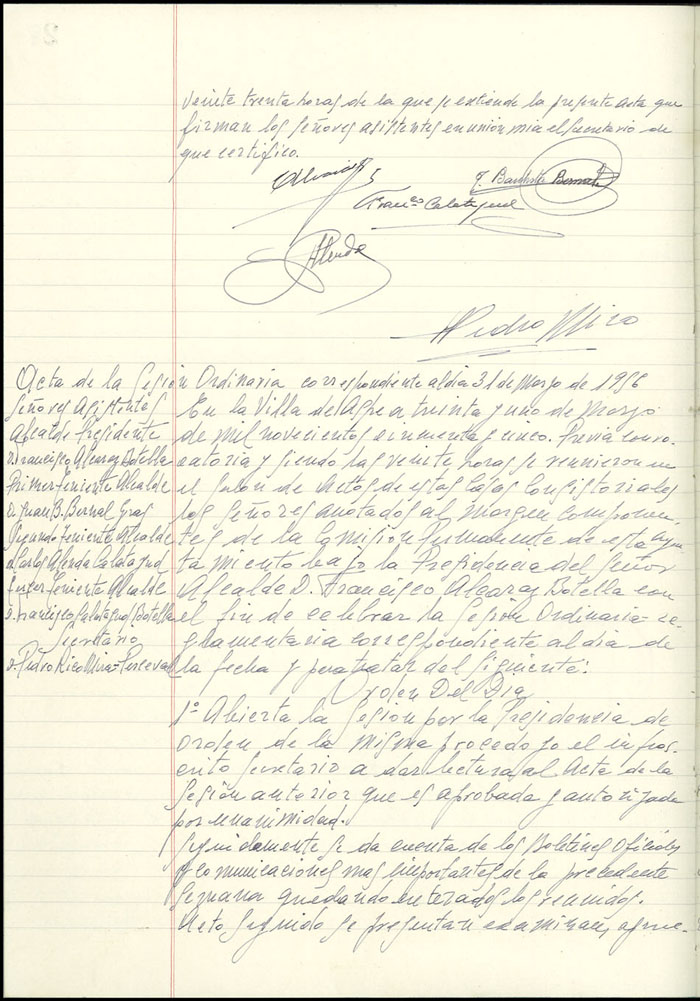 veinte treinta horas de la que se extiende la presente acta que
firman los señores asistentes en unión mia el secretario de
que certifico.
J. Bautista Bernal
Franco Calatayud
Alenda
Pedro Mira
Acta de la Sesión Ordinaria correspondiente al dia 31 de Marzo de 1956
Señores Asistentes
Alcalde Presidente
D. Francisco Alcaraz Botella
Primer Teniente Alcalde
D. Juan B. Bernal Gras
Segundo Teniente Alcalde
D. Carlos Alenda Calatayud
Tercer Teniente Alcalde
D. Francisco Calatayud Botella
Secretario
D. Pedro Rico Mira-Perceval
En la Villa de Aspe a treinta y uno de Marzo
de mil novecientos cincuenta y cinco. Previa convo-
catoria y siendo las veinte horas se reunieron en
el salon de Actos de estas Casas Consistoriales
los Señores anotados al margen componen-
tes de la Comision Permanente de esta Ayun-
tamiento bajo la Presidencia del Señor
Alcalde D. Francisco Alcaraz Botella con
el fin de celebrar la Sesion Ordinaria re-
glamentaria correspondiente al dia de
la fecha y para tratar del siguiente:
Orden Del Dia
1º Abierta la Sesion por la Presidencia de
orden de la misma procedo yo el infras-
crito Secretario a dar lectura al Acta de la
Sesión anterior que es aprobada y autorizada
por unanimidad.
Seguidamente se da cuenta de los Boletines Oficiales
y comunicaciones mas importantes de la precedente
semana quedando enterados los reunidos.
Acto seguido se presentan examinan, aprue-